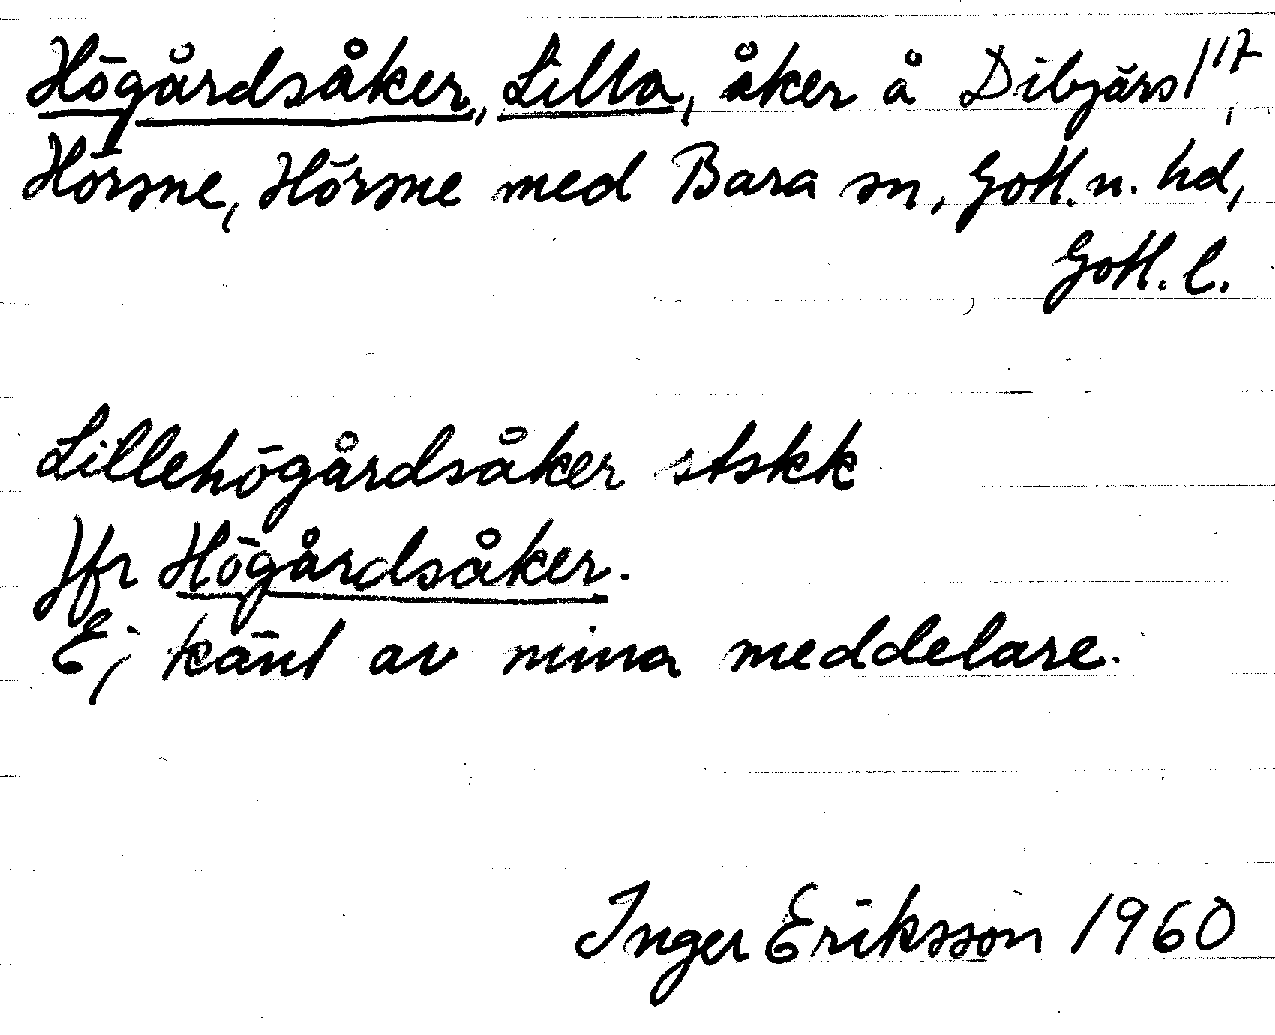 Högårdsåker, Lilla, åker å Dibjärs 1¹⁷,
Hörsne, Hörsne med Bara sn, Gotl. n. hd,
Gotl. l.
Lillehögårdsåker stskk
Jfr Högårdsåker.
Ej känt av mina meddelare.
Inger Eriksson 1960